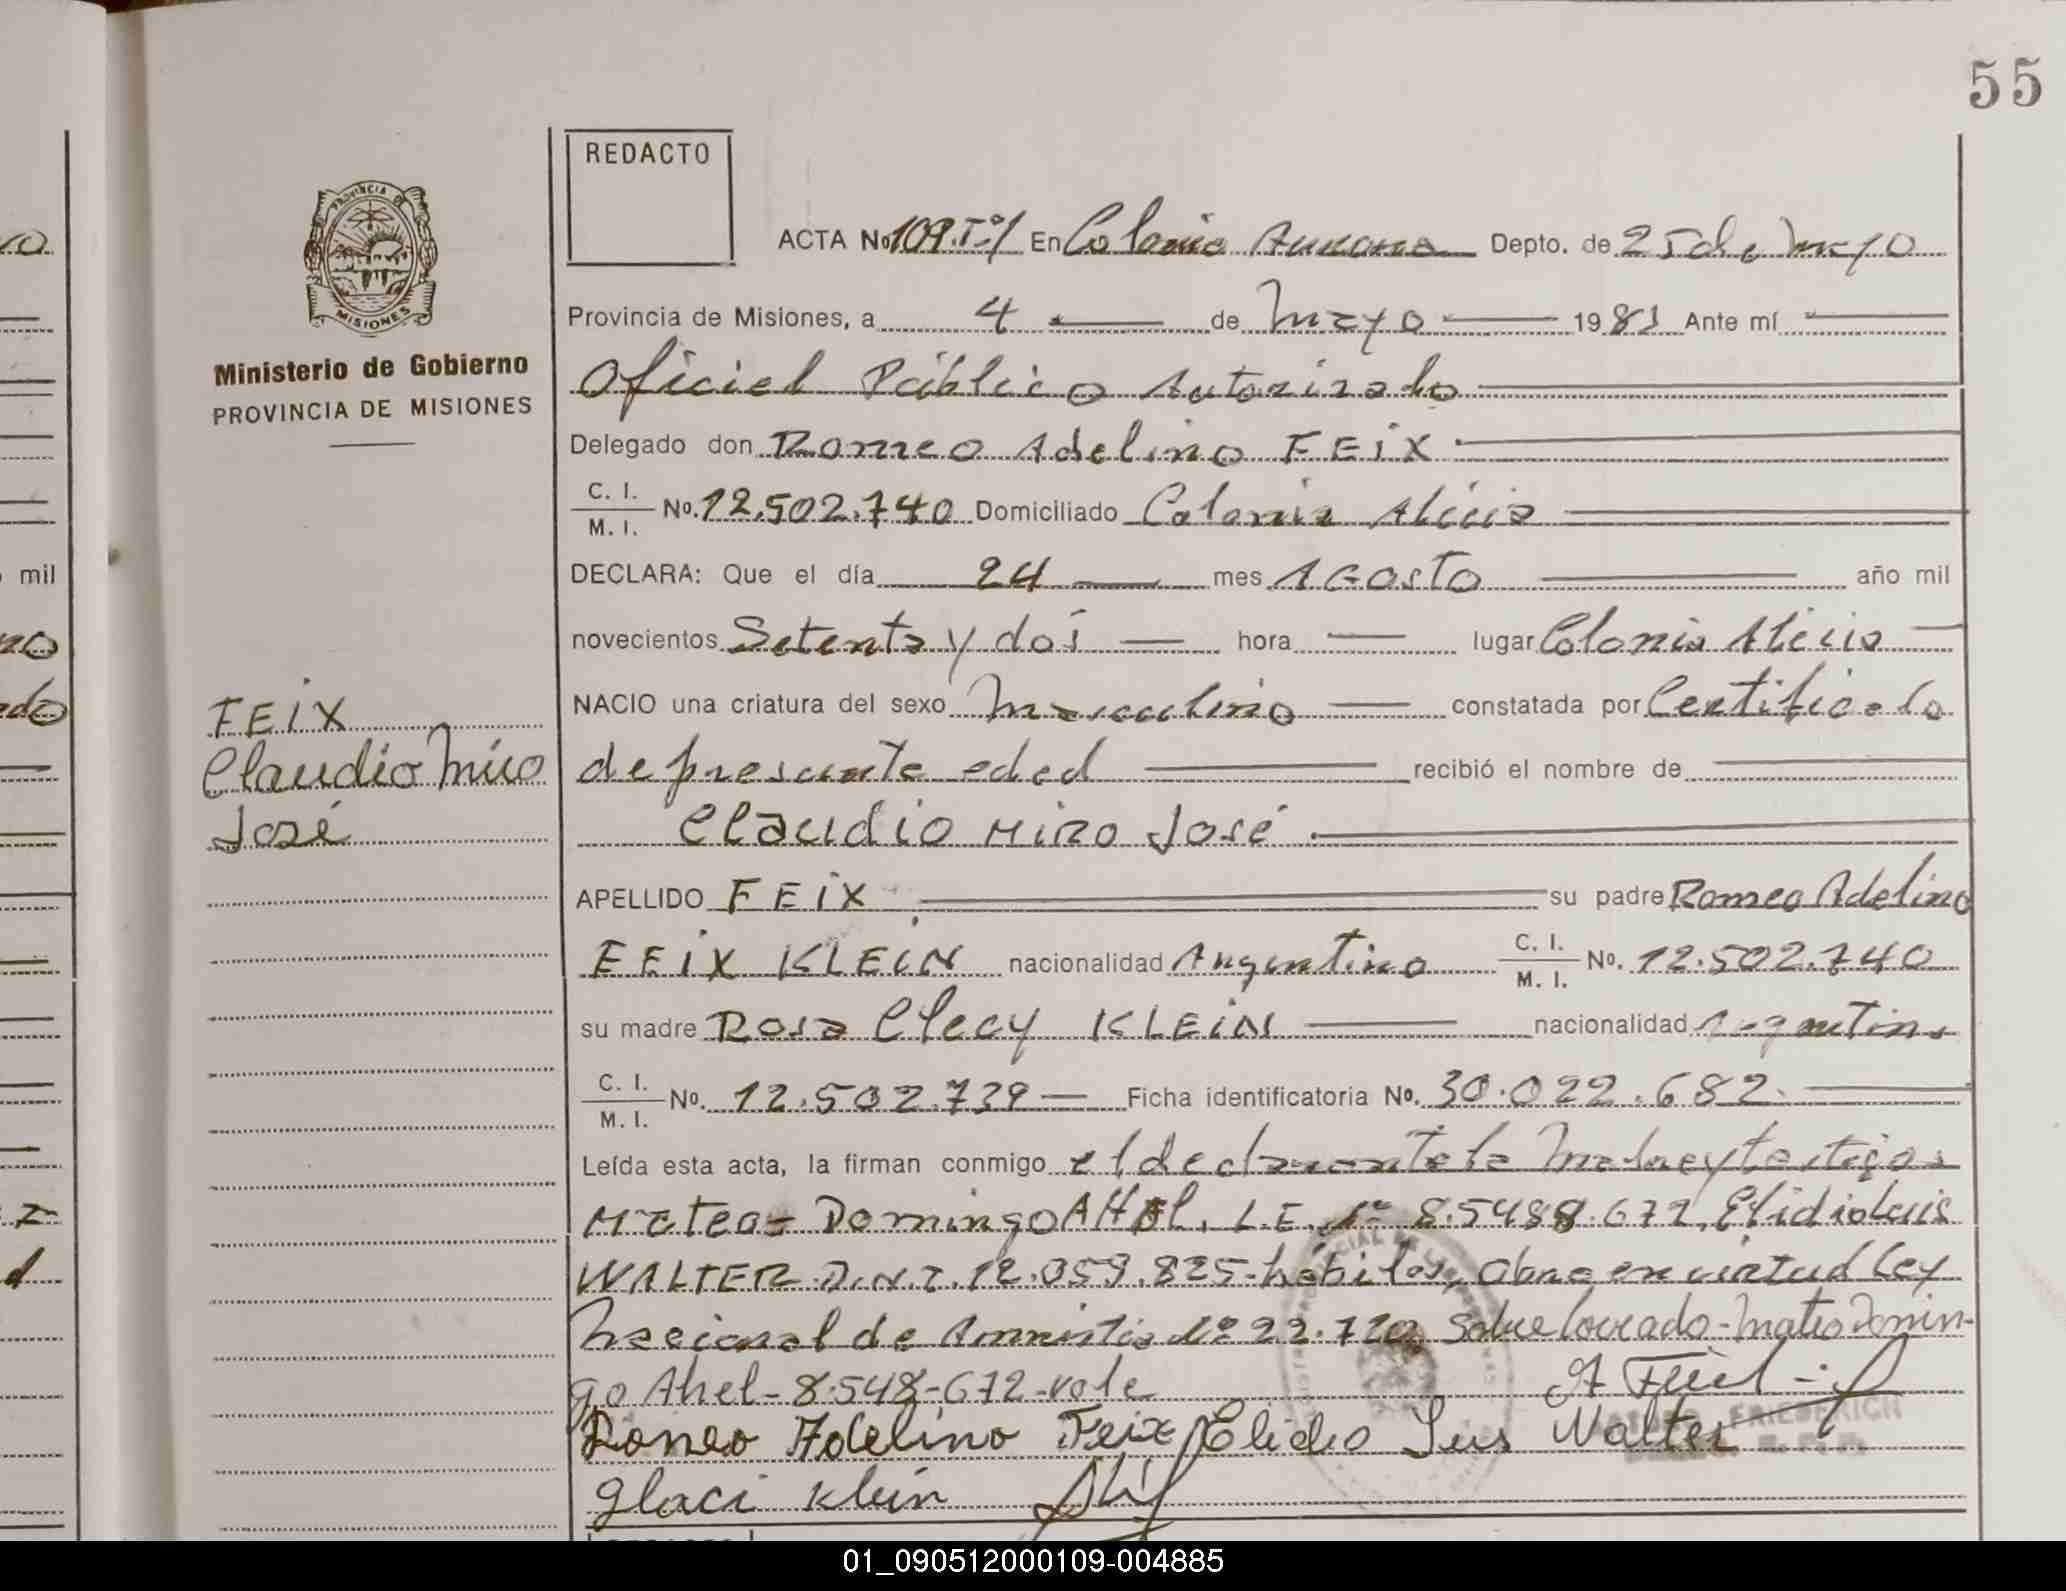 55
REDACTO
ACTA No 109.Tº1 En Colonia Aurora Depto. de 25 de Mayo
Provincia de Misiones, a 4 de Mayo 1983 Ante mí
Oficial Público Autorizado
Delegado don Romeo Adelino FEIX
C. I.
M. I. Nº. 12.502.740 Domiciliado Colonia Alicia
DECLARA: Que el día 24 mes AGOSTO año mil
novecientos Setenta y dós hora lugar Colonia Alicia
NACIO una criatura del sexo Masculino constatada por Certificado
de presunta edad recibió el nombre de
Claudio MIRO José
APELLIDO FEIX su padre Romeo Adelino
FEIX KLEIN nacionalidad Argentino C. I.
M. I. Nº. 12.502.740
su madre Rosa Clecy KLEIN nacionalidad Argentina
C. I.
M. I. Nº. 12.502.739 Ficha identificatoria Nº. 30.022.682
Leída esta acta, la firman conmigo el declarante la Madre y testigos
Mateo Domingo L.E. Nº 8.5488.672, Elidio Luis
WALTER D.N.I. 12.059.825 hábiles, Obra en virtud Ley
Nacional de Amnistia Nº 22.770, Sobre borrado - Mateo Domin-
go Ahel - 8.548-672 - vale
Romeo Adelino Feix Elidio Luis Walter
FRIEDERICH
glaci klein
PROVINCIA DE
MISIONES
Ministerio de Gobierno
PROVINCIA DE MISIONES
FEIX
Claudio Miro
José
mil
01_090512000109-004885